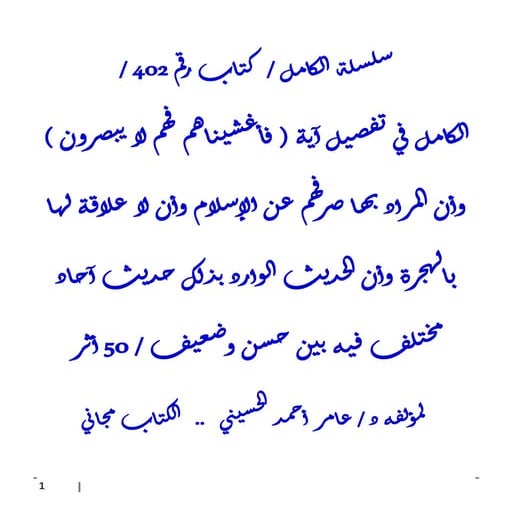 سلسلة الكامل / كتاب رقم 402 /
الكامل في تفصيل آية ( فأغشيناهم فهم لا يبصرون )
وأن المراد بها صرفهم عن الإسلام وأن لا علاقة لها
بالهجرة وأن الحديث الوارد بذلك حديث آحاد
مختلف فيه بين حسن وضعيف / 50 أثر
لمؤلفه د / عامر أحمد الحسيني .. الكتاب مجاني
1 |